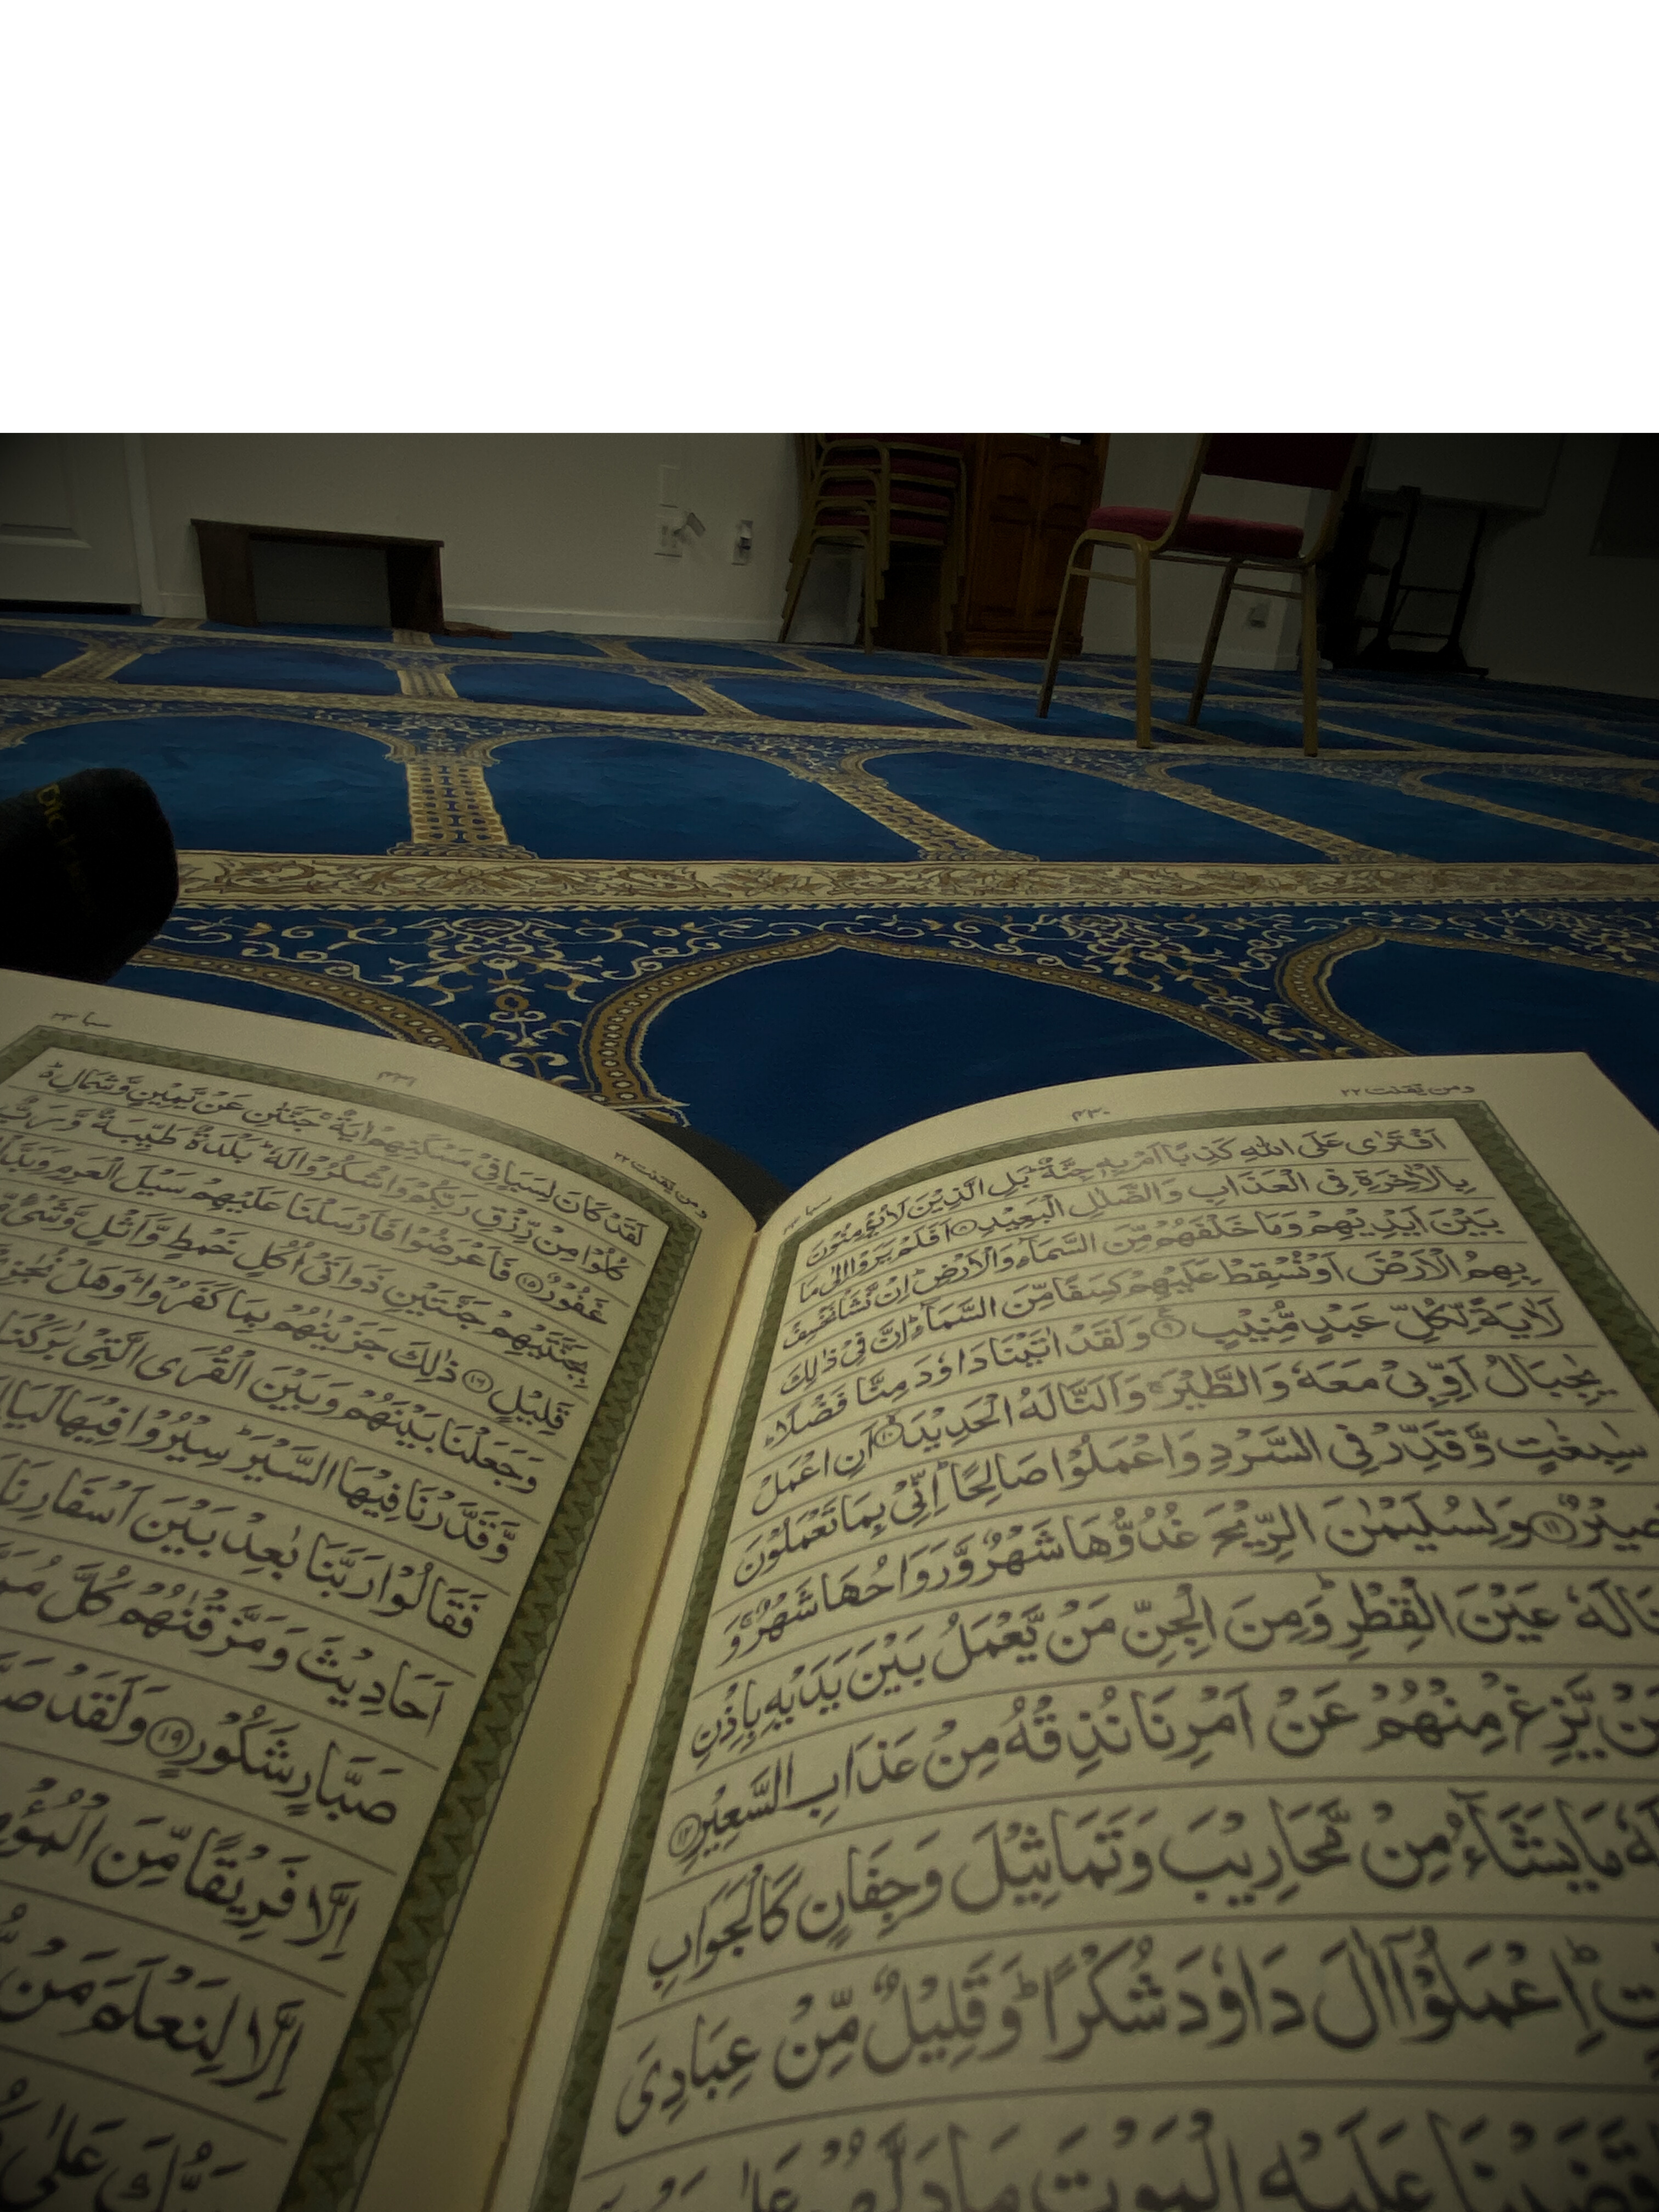 ومن يقنت ٢٢
٤٣٠
سبا ٣٤
اَفْتَرٰى عَلَى اللّٰهِ كَذِبًا اَمْ بِهٖ جِنَّةٌ ؕ بَلِ الَّذِيْنَ لَا يُؤْمِنُوْنَ
بِالْاٰخِرَةِ فِى الْعَذَابِ وَالضَّلٰلِ الْبَعِيْدِ ۝٨ اَفَلَمْ يَرَوْا اِلٰى مَا
بَيْنَ اَيْدِيْهِمْ وَمَا خَلْفَهُمْ مِّنَ السَّمَآءِ وَالْاَرْضِ ؕ اِنْ نَّشَاْ نَخْسِفْ
بِهِمُ الْاَرْضَ اَوْ نُسْقِطْ عَلَيْهِمْ كِسَفًا مِّنَ السَّمَآءِ ؕ اِنَّ فِىْ ذٰلِكَ
لَاٰيَةً لِّكُلِّ عَبْدٍ مُّنِيْبٍ ۝٩ وَلَقَدْ اٰتَيْنَا دَاوٗدَ مِنَّا فَضْلًا ؕ
يٰجِبَالُ اَوِّبِىْ مَعَهٗ وَالطَّيْرَ ۚ وَاَلَنَّا لَهُ الْحَدِيْدَ ۝١٠ اَنِ اعْمَلْ
سٰبِغٰتٍ وَّقَدِّرْ فِى السَّرْدِ وَاعْمَلُوْا صَالِحًا ؕ اِنِّىْ بِمَا تَعْمَلُوْنَ
بَصِيْرٌ ۝١١ وَلِسُلَيْمٰنَ الرِّيْحَ غُدُوُّهَا شَهْرٌ وَّرَوَاحُهَا شَهْرٌ ۚ وَ
عَيْنَ الْقِطْرِ ؕ وَمِنَ الْجِنِّ مَنْ يَّعْمَلُ بَيْنَ يَدَيْهِ بِاِذْنِ
يَّزِغْ مِنْهُمْ عَنْ اَمْرِنَا نُذِقْهُ مِنْ عَذَابِ السَّعِيْرِ ۝١٢
مَا يَشَآءُ مِنْ مَّحَارِيْبَ وَتَمَاثِيْلَ وَجِفَانٍ كَالْجَوَابِ
اِعْمَلُوْۤا اٰلَ دَاوٗدَ شُكْرًا ؕ وَقَلِيْلٌ مِّنْ عِبَادِىَ
قَضَيْنَا عَلَيْهِ الْمَوْتَ مَا دَلَّهُمْ
ومن يقنت ٢٢
٤٣١
سبا ٣٤
لَقَدْ كَانَ لِسَبَاٍ فِىْ مَسْكَنِهِمْ اٰيَةٌ ۚ جَنَّتٰنِ عَنْ يَّمِيْنٍ وَّشِمَالٍ ؕ
كُلُوْا مِنْ رِّزْقِ رَبِّكُمْ وَاشْكُرُوْا لَهٗ ؕ بَلْدَةٌ طَيِّبَةٌ وَّرَبٌّ
غَفُوْرٌ ۝١٥ فَاَعْرَضُوْا فَاَرْسَلْنَا عَلَيْهِمْ سَيْلَ الْعَرِمِ
بِجَنَّتَيْهِمْ جَنَّتَيْنِ ذَوَاتَىْ اُكُلٍ خَمْطٍ وَّاَثْلٍ وَّشَىْءٍ
قَلِيْلٍ ۝١٦ ذٰلِكَ جَزَيْنٰهُمْ بِمَا كَفَرُوْا ؕ وَهَلْ
وَجَعَلْنَا بَيْنَهُمْ وَبَيْنَ الْقُرَى الَّتِىْ بٰرَكْنَا
وَّقَدَّرْنَا فِيْهَا السَّيْرَ ؕ سِيْرُوْا فِيْهَا
فَقَالُوْا رَبَّنَا بٰعِدْ بَيْنَ اَسْفَارِنَا
اَحَادِيْثَ وَمَزَّقْنٰهُمْ كُلَّ
صَبَّارٍ شَكُوْرٍ ۝١٩ وَلَقَدْ
اِلَّا فَرِيْقًا مِّنَ
اِلَّا لِنَعْلَمَ مَنْ
عَلٰى